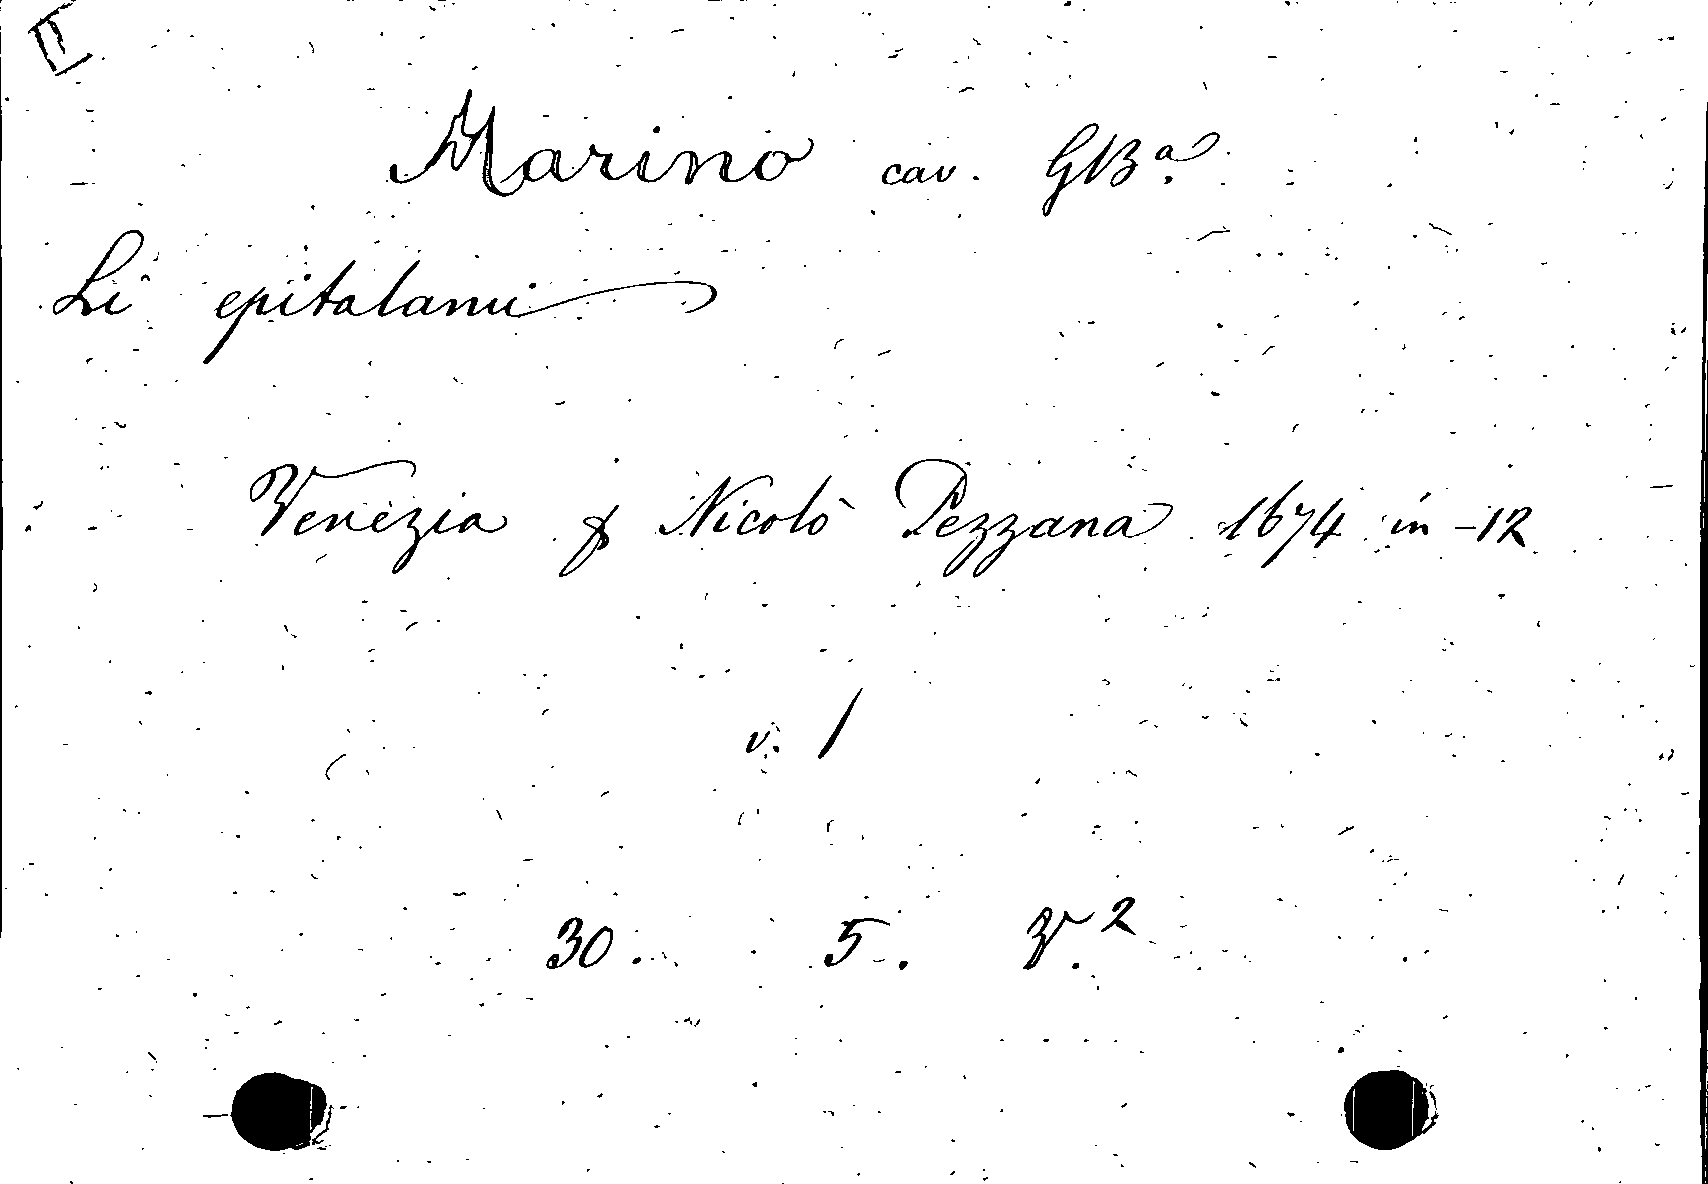 II
Marino cav. GBa.
Li epitalami
Venezia p Nicolò Pezzana 1674 in-12
v. 1
30. 5. V.2